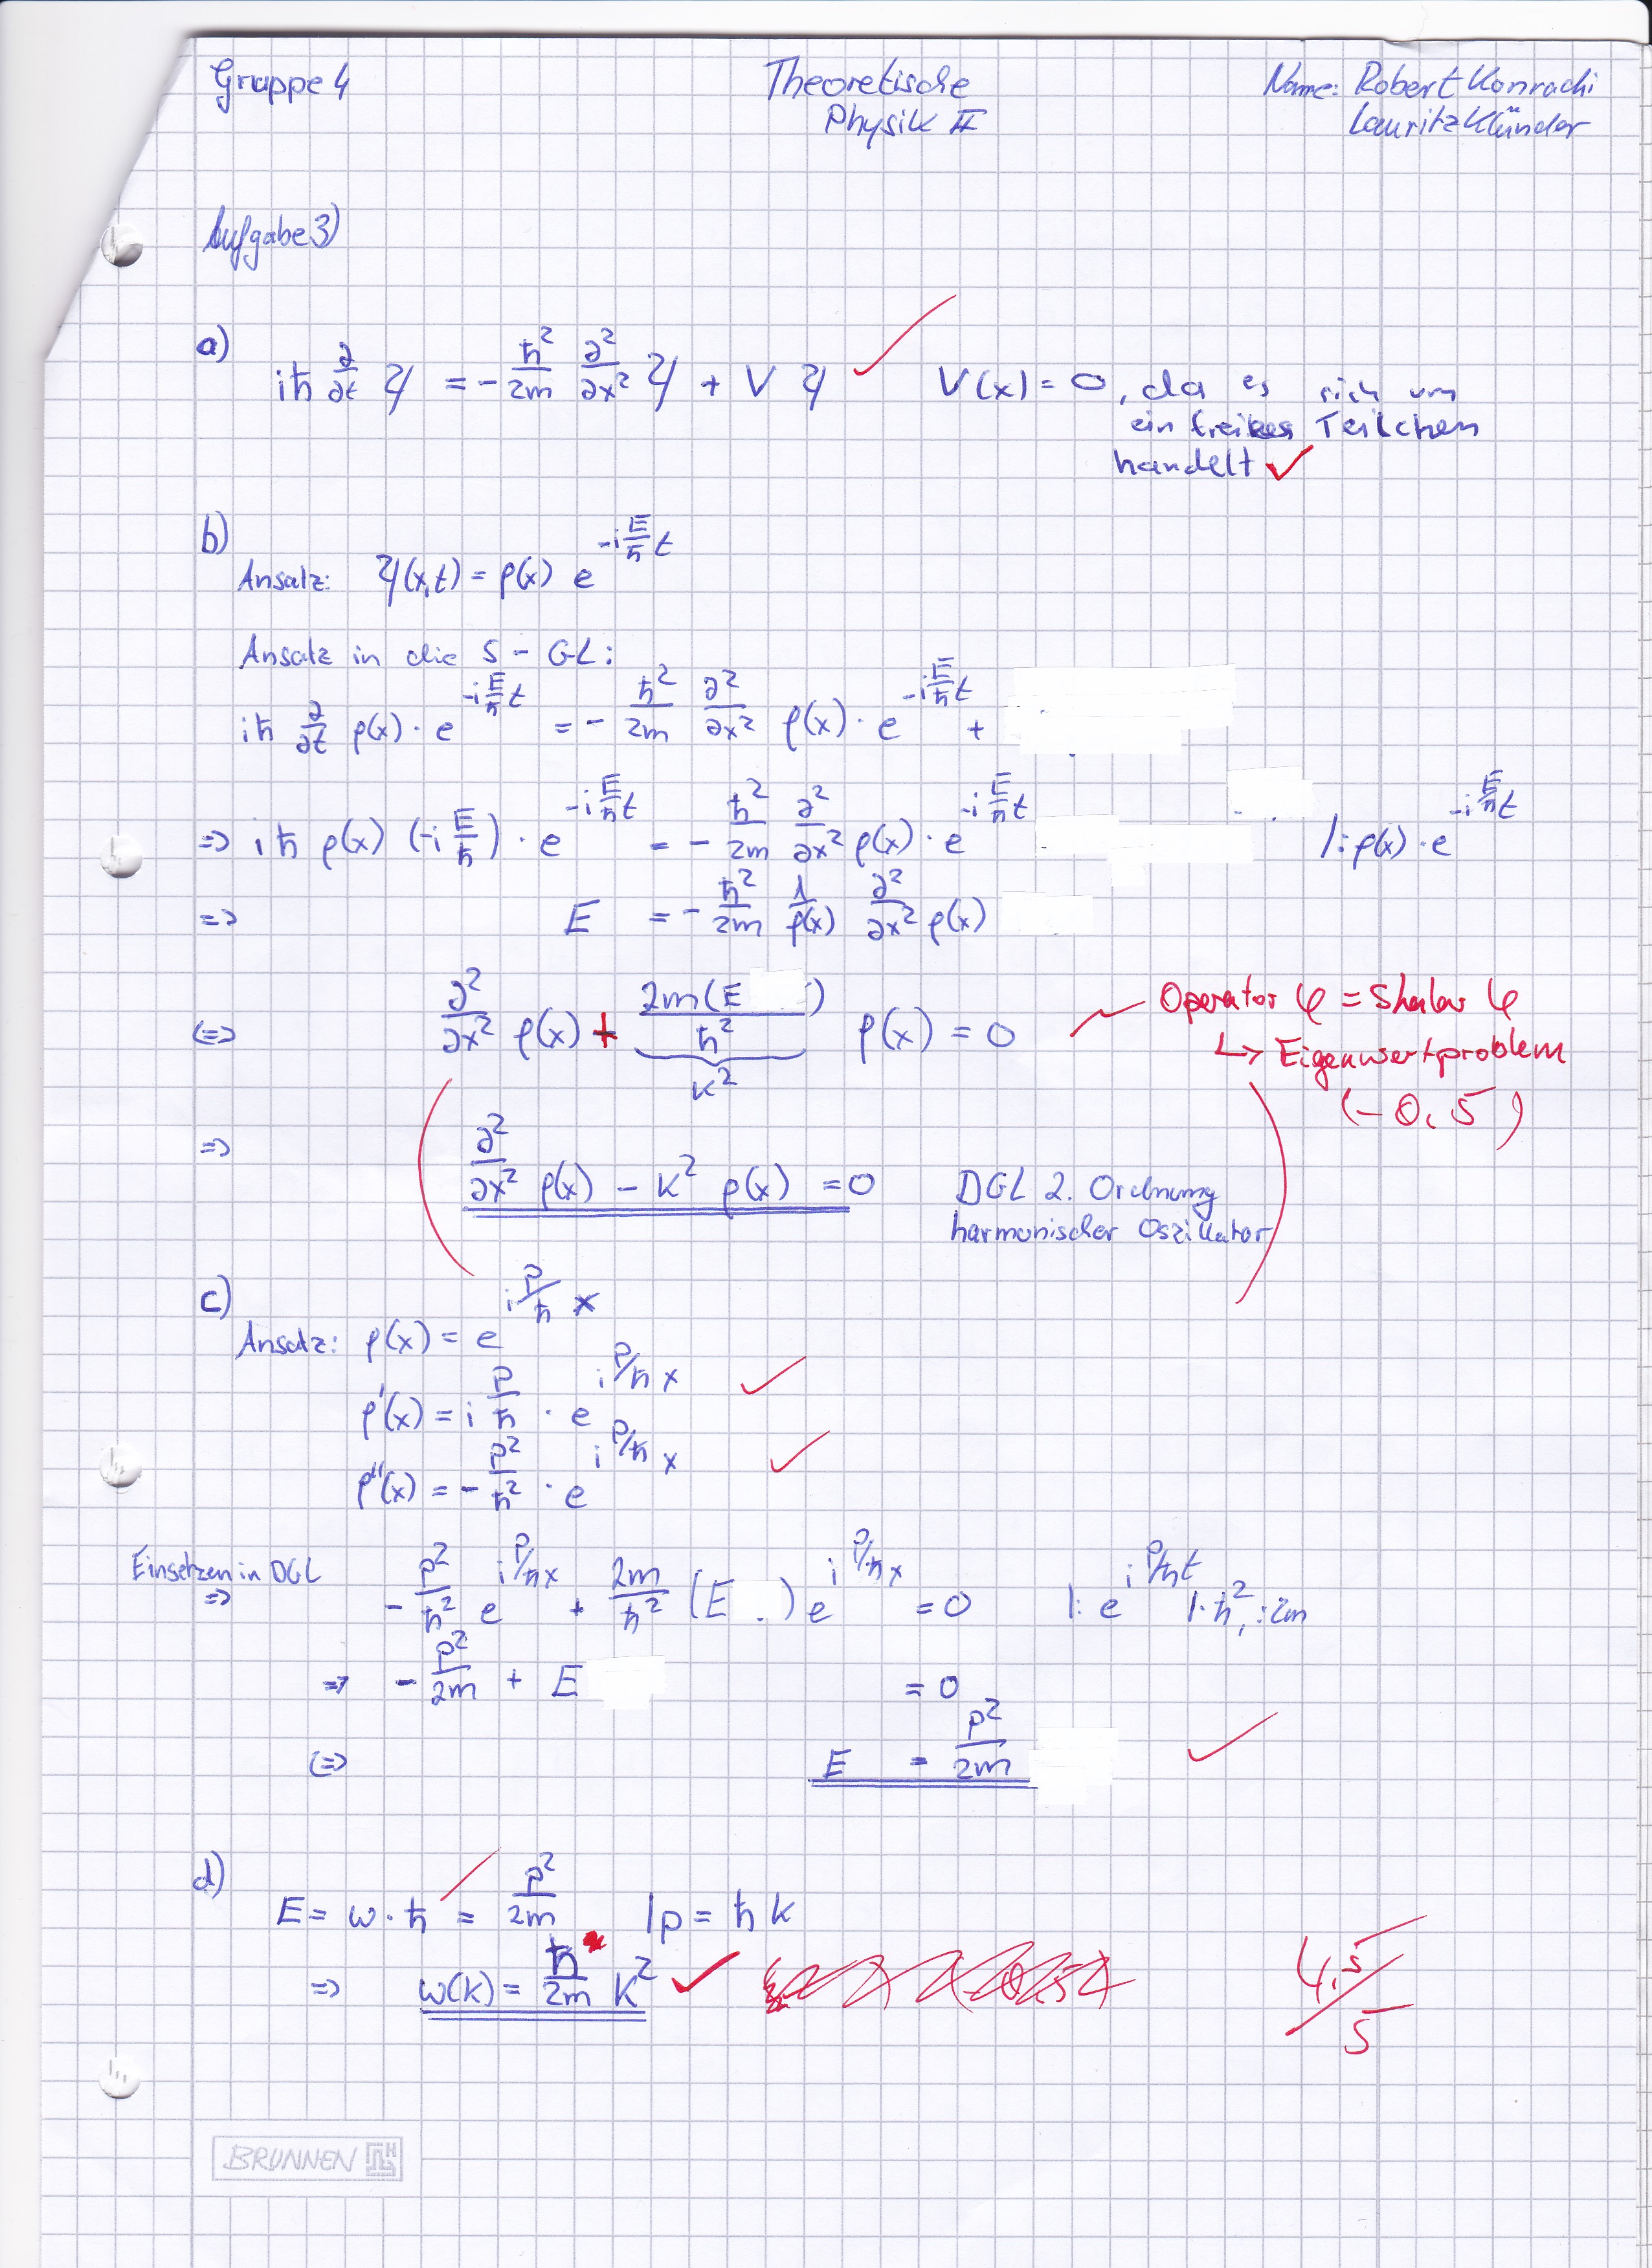 Gruppe 4
Theoretische Physik II
Name: Robert Konradi
Lauritz Klünder
Aufgabe 3)
a) iħ ∂/∂t Ψ = - ħ²/2m ∂²/∂x² Ψ + V Ψ
V(x) = 0, da es sich um
ein freies Teilchen
handelt ✓
b)
Ansatz: Ψ(x,t) = φ(x) e^(-i E/ħ t)
Ansatz in die S-GL:
iħ ∂/∂t φ(x) · e^(-i E/ħ t) = - ħ²/2m ∂²/∂x² φ(x) · e^(-i E/ħ t) +
=> iħ φ(x) (-i E/ħ) · e^(-i E/ħ t) = - ħ²/2m ∂²/∂x² φ(x) · e^(-i E/ħ t) |: φ(x) · e^(-i E/ħ t)
=> E = - ħ²/2m 1/φ(x) ∂²/∂x² φ(x)
<=> ∂²/∂x² φ(x) + 2m(E )/ħ² φ(x) = 0
k²
Operator φ = Skalar φ
↳ Eigenwertproblem
(-0,5)
=> ∂²/∂x² φ(x) - k² φ(x) = 0 DGL 2. Ordnung
harmonischer Oszillator
c)
Ansatz: φ(x) = e^(i p/ħ x)
φ'(x) = i p/ħ · e^(i p/ħ x) ✓
φ''(x) = - p²/ħ² · e^(i p/ħ x) ✓
Einsetzen in DGL
=> - p²/ħ² e^(i p/ħ x) + 2m/ħ² (E ) e^(i p/ħ x) = 0 |: e^(i p/ħ t) |· ħ², : 2m
=> - p²/2m + E = 0
<=> E = p²/2m ✓
d)
E = ω · ħ = p²/2m | p = ħ k
=> ω(k) = ħ/2m k² ✓
4,5/5
BRUNNEN